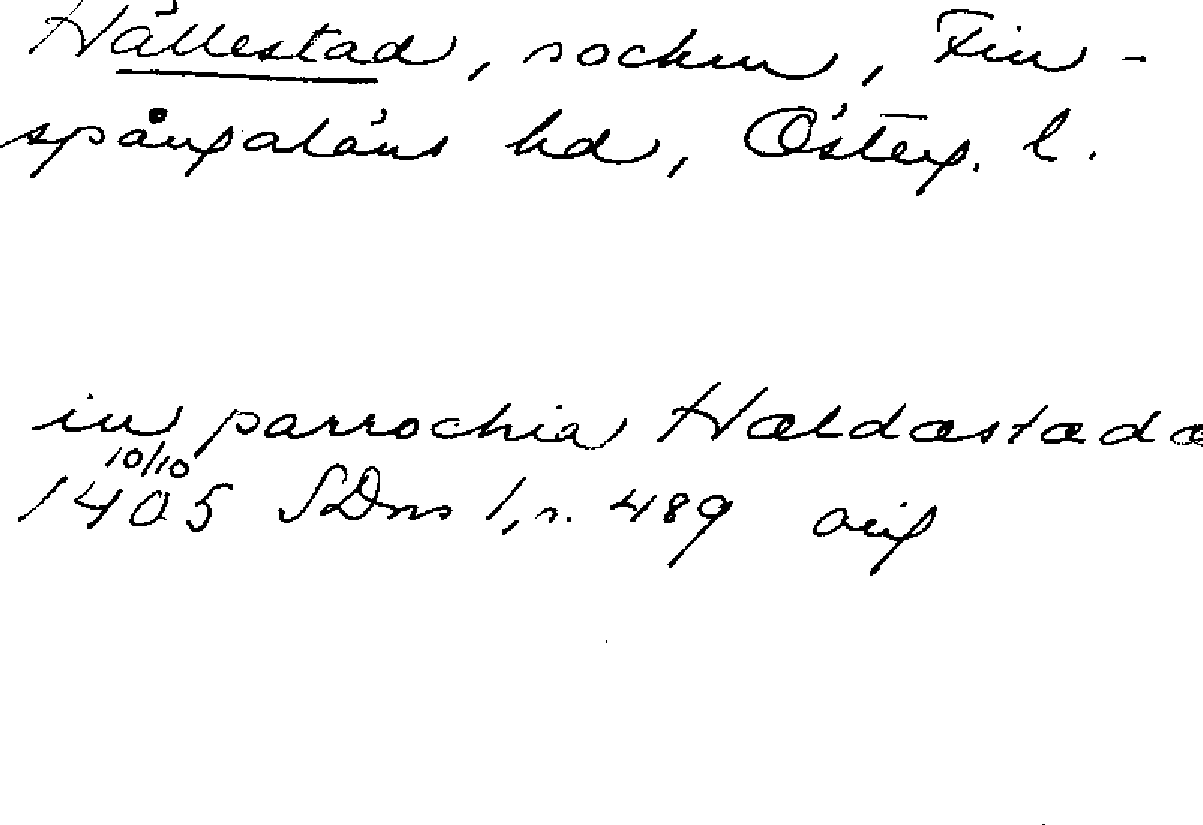 Hällestad, socken, Fin-
spångaläns hd, Österg. l.
in parrochia Hældæstadæ
10/10
1405 SDns 1, s. 489 orig